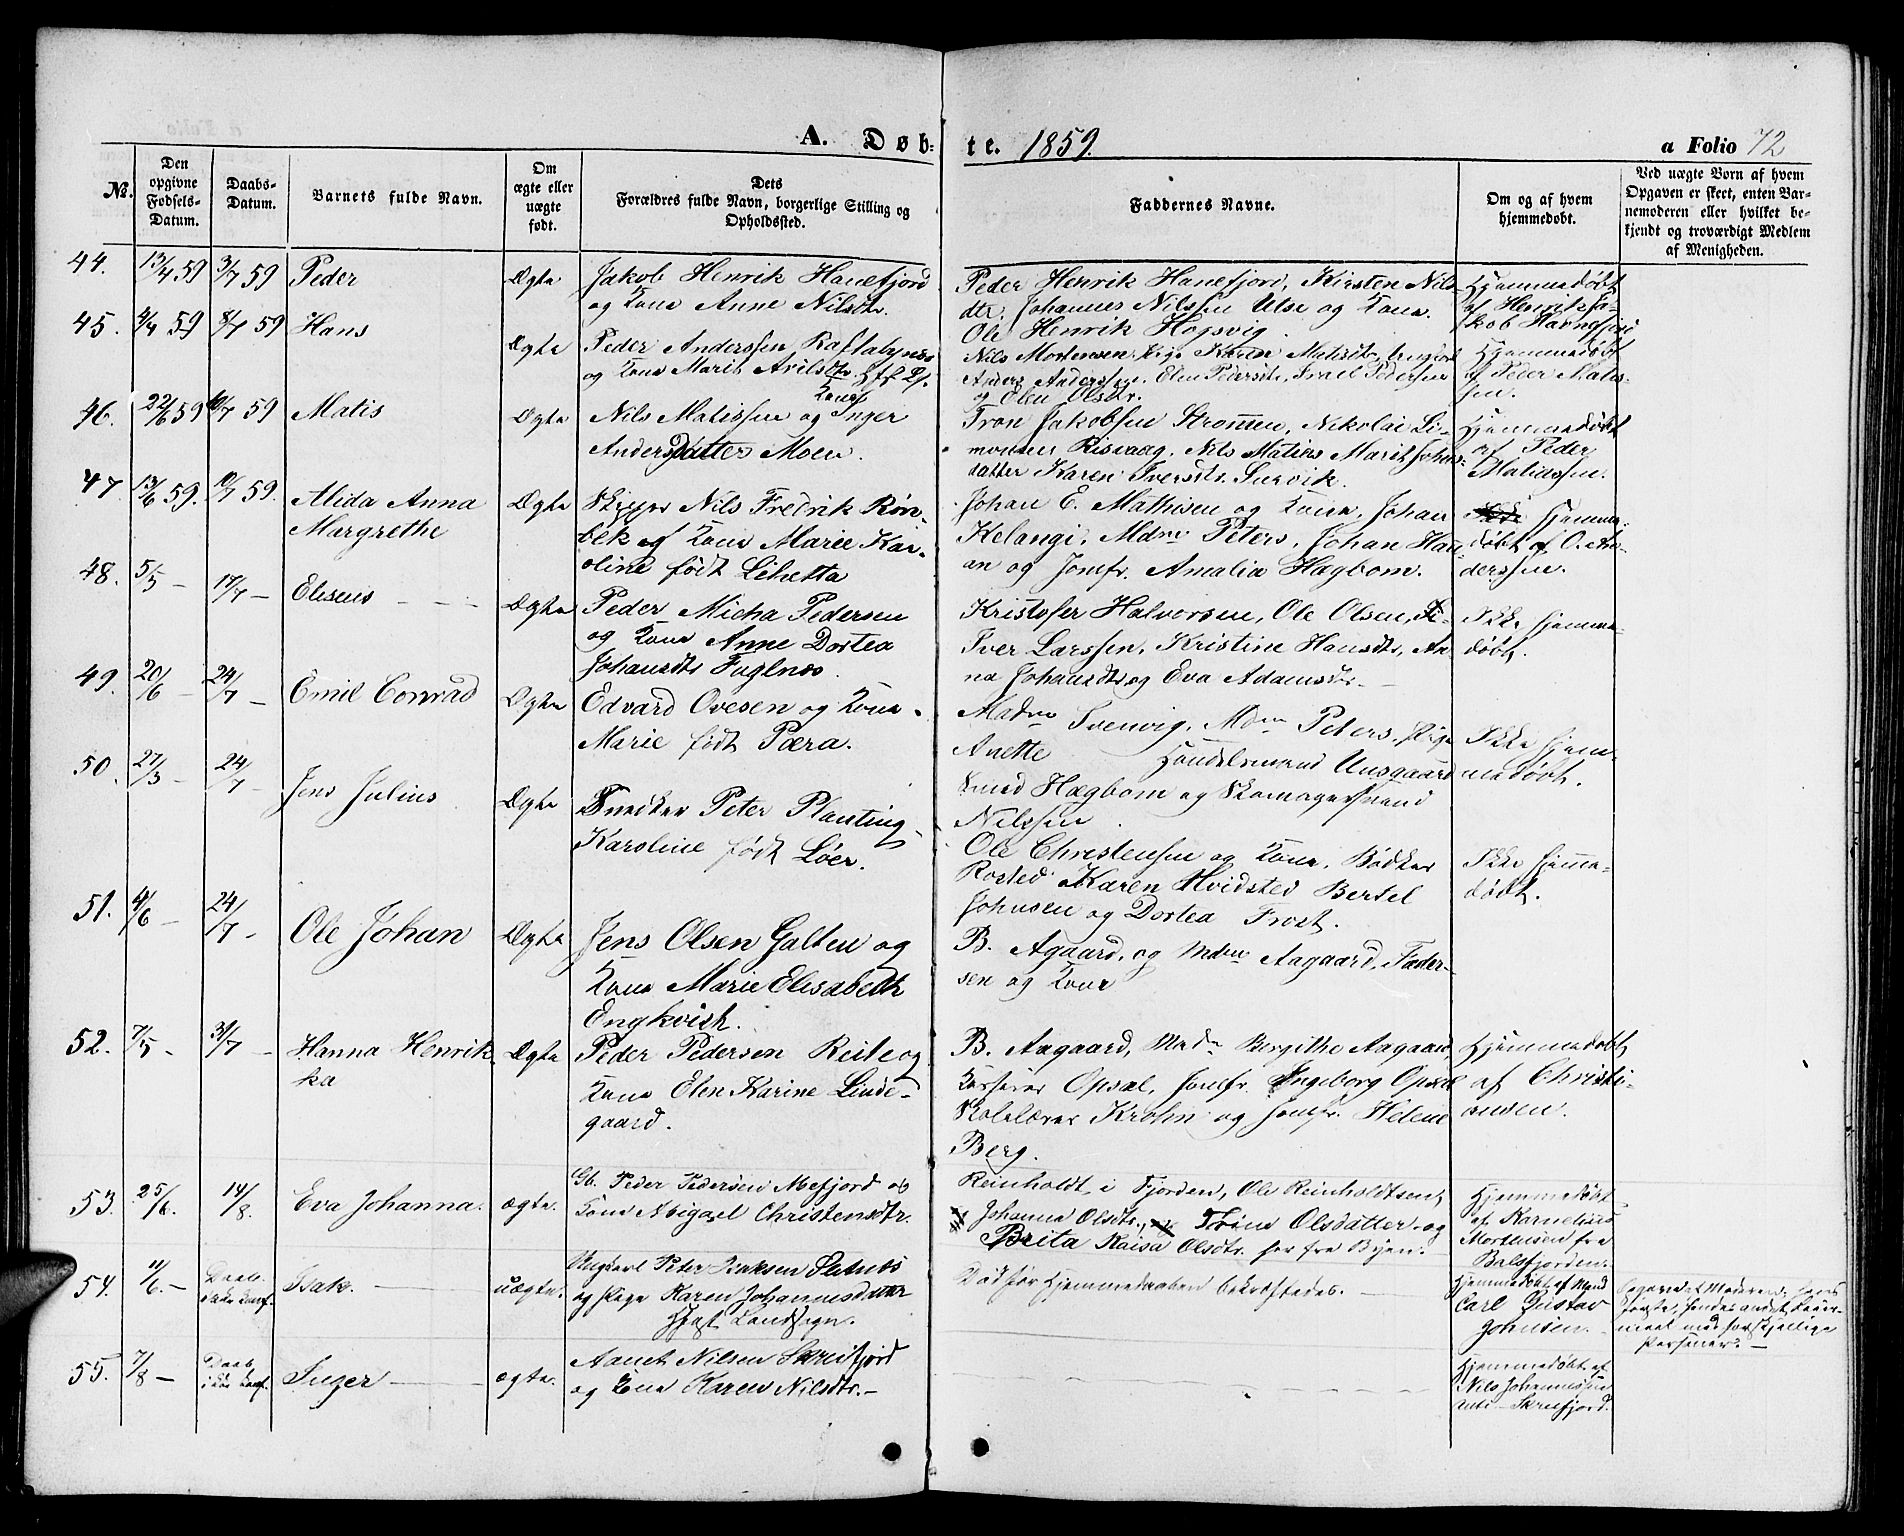 A. Døb-
te. 1859.
a Folio 72
No.
Den opgivne Fødsels-Datum.
Daabs-Datum.
Barnets fulde Navn.
Om ægte eller uægte født.
Dets Forældres fulde Navn, borgerlige Stilling og Opholdssted.
Faddernes Navne.
Om og af hvem hjemmedøbt.
Ved uægte Børn af hvem Opgaven er skeet, enten Barnemoderen eller hvilket bekjendt og troværdigt Medlem af Menigheden.
44. 13/4 59 3/7 59 Peder Ægte
Jakob Henrik Hanefjord
og Kone Anne Nilsdtr.
Peder Henrik Hanefjord, Kirsten Nils-
dtr. Johannes Nilssen Ulse og Kone.
Ole Henrik Høgsvig
Hjemmedøbt
af Henrik Ja-
kob Hannefjord
45. 4/4 59 8/7 59 Hans Ægte
Peder Anderssen
og Kone Marit Arilsdtr.
Nils Mortensen, Pige Karen Matisdtr.
Anders Anderssen, Elen Pedersdtr, Israel Pedersen
og Elen Olsdtr.
Hjemmedøbt
af Peder Matis-
sen.
46. 22/6 59 10/7 59 Matis Ægte
Nils Matissen og Kone Inger
Andersdatter Moen.
Tron Jakobsen Strømen, Nikolai Si-
monsen Risvaag, Nils Matias Marit Johns-
datter Karen Iversdtr. Survik.
Hjemmedøbt
af Peder
Matiassen.
47. 13/6 59. 10/7 59. Alida Anna
Margrethe
Ægte
Skipper Nils Fredrik Røn-
bek og Kone Marie Kar-
oline født Lihetta
Johan E. Mathisen og Kone, Johan
Kelangi, Mdme Peters, Johan Hau-
an og Jomfr. Amalia Hagbom.
Hjemme-
døbt af O. An-
derssen.
48. 5/5 - 17/7 - Eliseus - - - Ægte
Peder Micha Pedersen
og Kone Anne Dortea
Johansdtr Fuglnes.
Kristofer Halvorsen, Ole Olsen,
Iver Larssen, Kristine Hansdtr, An-
na Johansdtr og Eva Adamsdtr. -
Ikke hjemme-
døbt.
49. 20/6 - 24/7 - Emil Conrad Ægte
Edvard Ovesen og Kone
Marie født Pæra.
Madme Svenvig, Mdme Peters, Pige
Anette Handelsmand Unsgaard
Smed Hagbom og Skomagersvend
Nilssen.
Ikke hjem-
medøbt.
50. 27/3 - 24/7 - Jens Julius Ægte
Snedker Peter Planting
Karoline født Løer.
Ole Christensen og Kone, Bødker
Rosted Karen Hvidsted Bertel
Johnsen og Dortea Frost.
Ikke hjemme-
døbt.
51. 4/6 - 24/7 - Ole Johan Ægte
Jens Olsen Galten og
Kone Marie Elisabeth
Engkvist.
B. Agaard, og Mdme Aagaard,
sen og Kone
52. 7/5 - 31/7 - Hanna Henrik-
ka
Ægte
Peder Pedersen Reite og
Kone Elen Karine Linde-
gaard.
B. Aagaard, Madme Bergithe Aagaard,
Kasserer Opsal, Jomfr. Ingeborg Opsal
Skolelærer Krohn og Jomfr. Helene
Berg.
Hjemmedøbt
af Christi-
ansen.
53. 25/6. 14/8. Eva Johanna. ægte.
Gb. Peder Pedersen Mefjord og
Kone Abigael Christensdtr.
Reinholdt i Fjorden, Ole Reinholdtsen,
Johanna Olsdtr., Trine Olsdatter og
Brita Kaisa Olsdtr. her fra Byen.
Hjemmedøbt
af Kornelius
Mortensen fra
Balsfjorden.
54. 11/6. - Daab
ikke konf.
Isak. - uægte.
Ungkarl Peter Isaksen
og Pige Karen Johannesdatter
Død før Hjemmedaaben bekræftedes. -
Hjemmedøbt af Mand
Carl Gustav
Johnsen.
Opgivet af Moderen; hans
første, hendes andet Leier-
maal med forskjellige
Personer. -
55. 7/8 - Daab
ikke konf.
Inger - ægte.
Aanet Nilsen Skreifjord
og Kone Karen Nilsdtr. -
Hjemmedøbt af
Nils Johannessen
Skreifjord.